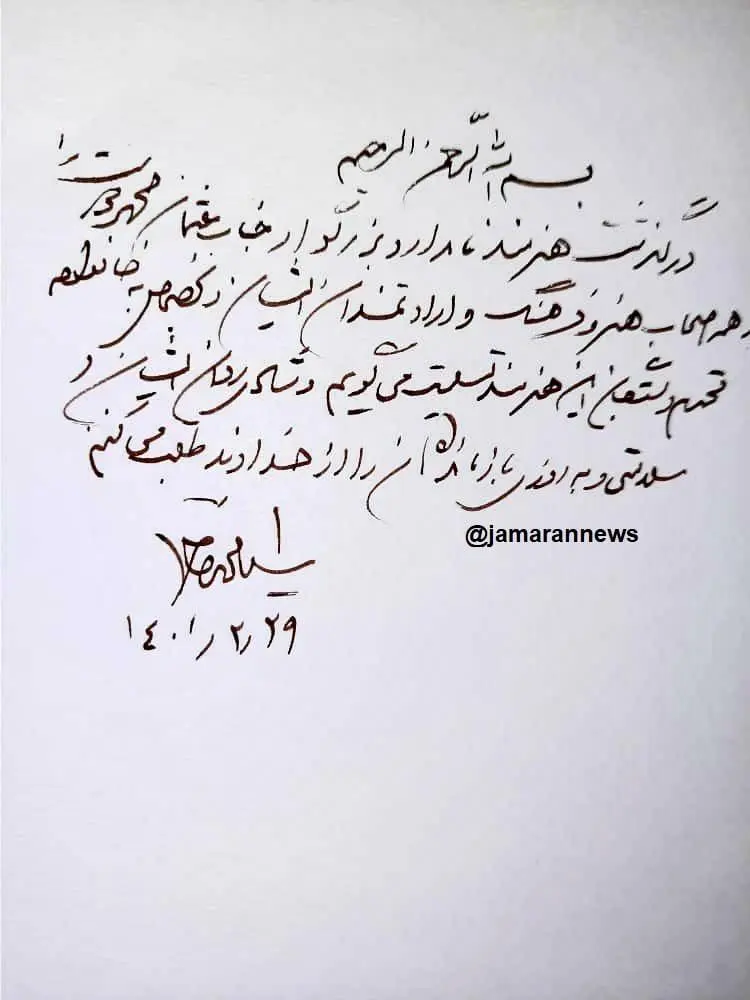 بسم الله الرحمن الرحیم
درگذشت هنرمند نامدار و بزرگوار جناب عثمان محمدپرست را
به همه اصحاب هنر و فرهنگ و ارادتمندان ایشان و بخصوص به خانواده
محترم و متعلقان این هنرمند تسلیت می‌گویم و شادی روان ایشان و
سلامتی و بهروزی بازماندگان را از خداوند طلب می‌کنم
@jamarannews
سید محمد خاتمی
۱۴۰۱/۲/۲۹